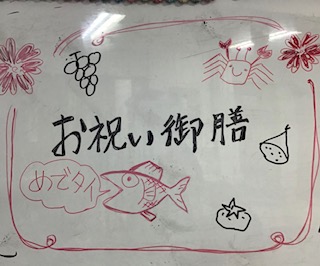 お祝い御膳
めでタイ